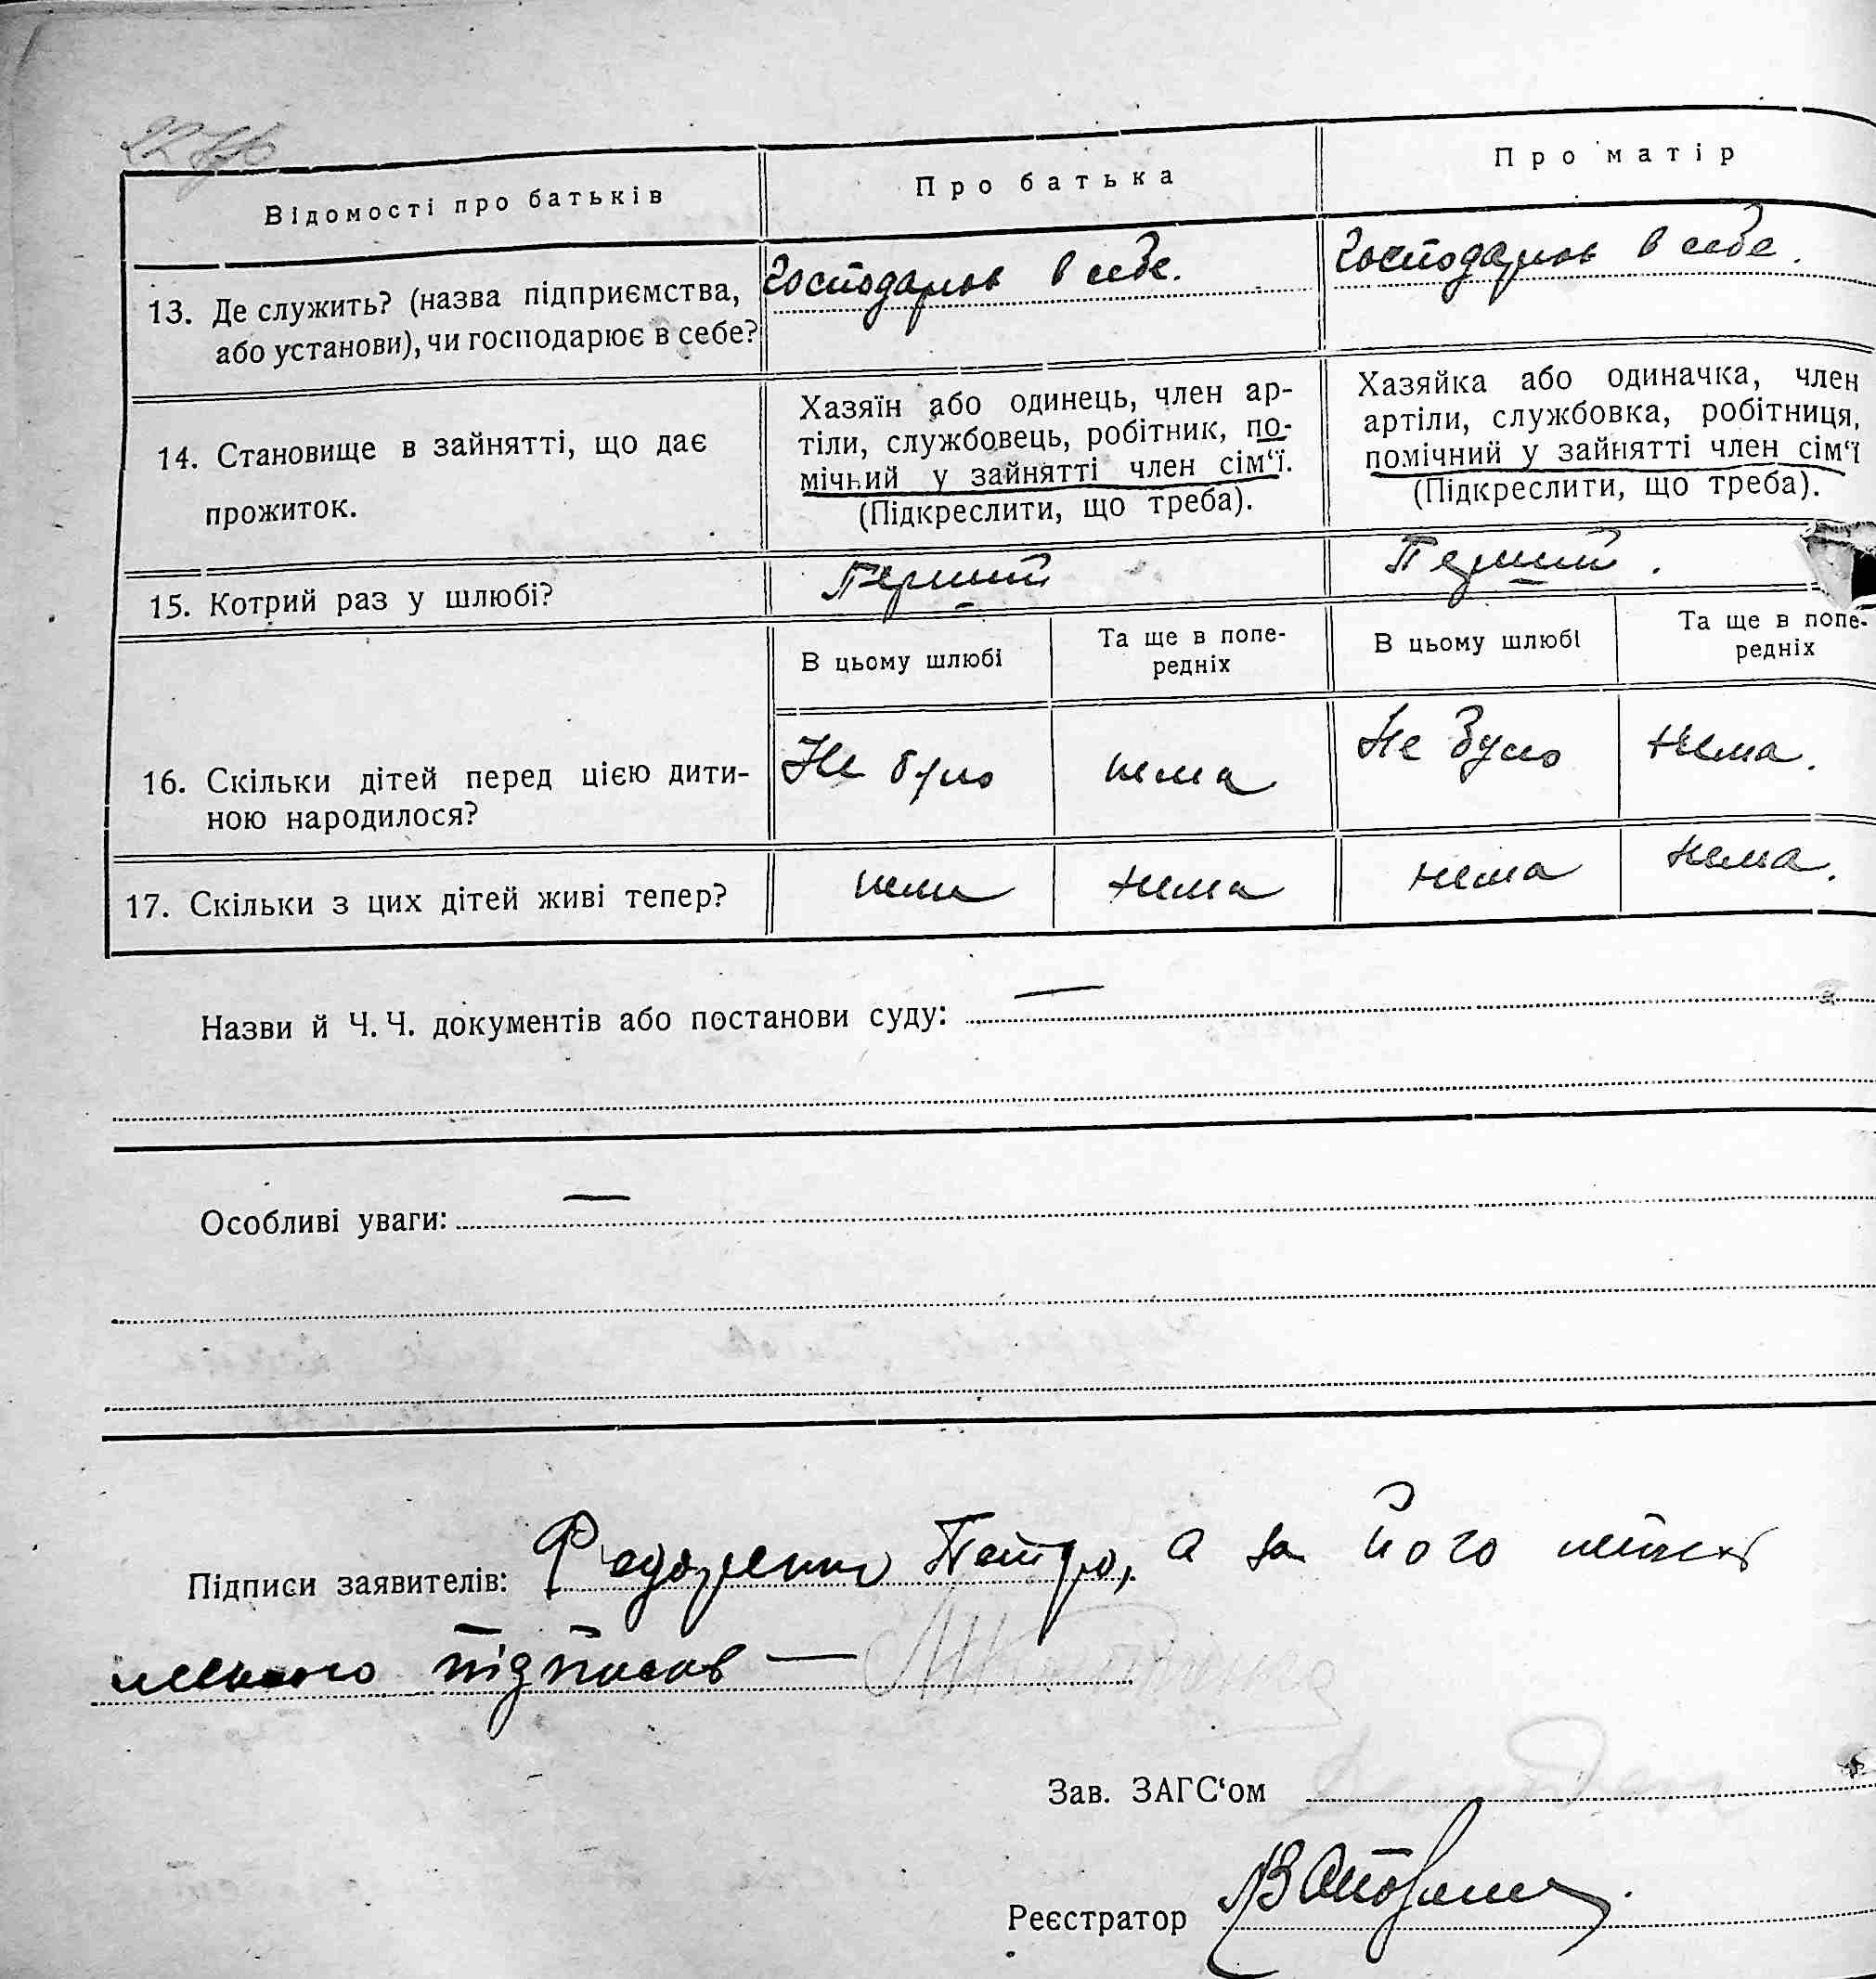 22 зв
Відомості про батьків
Про батька
Про матір
13. Де служить? (назва підприємства,
або установи), чи господарює в себе?
Господарює в себе.
Господарює в себе.
14. Становище в зайнятті, що дає
прожиток.
Хазяїн або одинець, член ар-
тіли, службовець, робітник, по-
мічний у зайнятті член сім‘ї.
(Підкреслити, що треба).
Хазяйка або одиначка, член
артіли, службовка, робітниця,
помічний у зайнятті член сім‘ї
(Підкреслити, що треба).
15. Котрий раз у шлюбі?
Перший
Перший.
В цьому шлюбі
Та ще в попе-
редніх
В цьому шлюбі
Та ще в попе-
редніх
16. Скільки дітей перед цією дити-
ною народилося?
Не було
нема
Не було
нема.
17. Скільки з цих дітей живі тепер?
нема
нема
нема
нема.
Назви й Ч. Ч. документів або постанови суду: —
Особливі уваги: —
Підписи заявителів: Федоренко Петро, а за його
підписав —
Зав. ЗАГС‘ом
Реєстратор